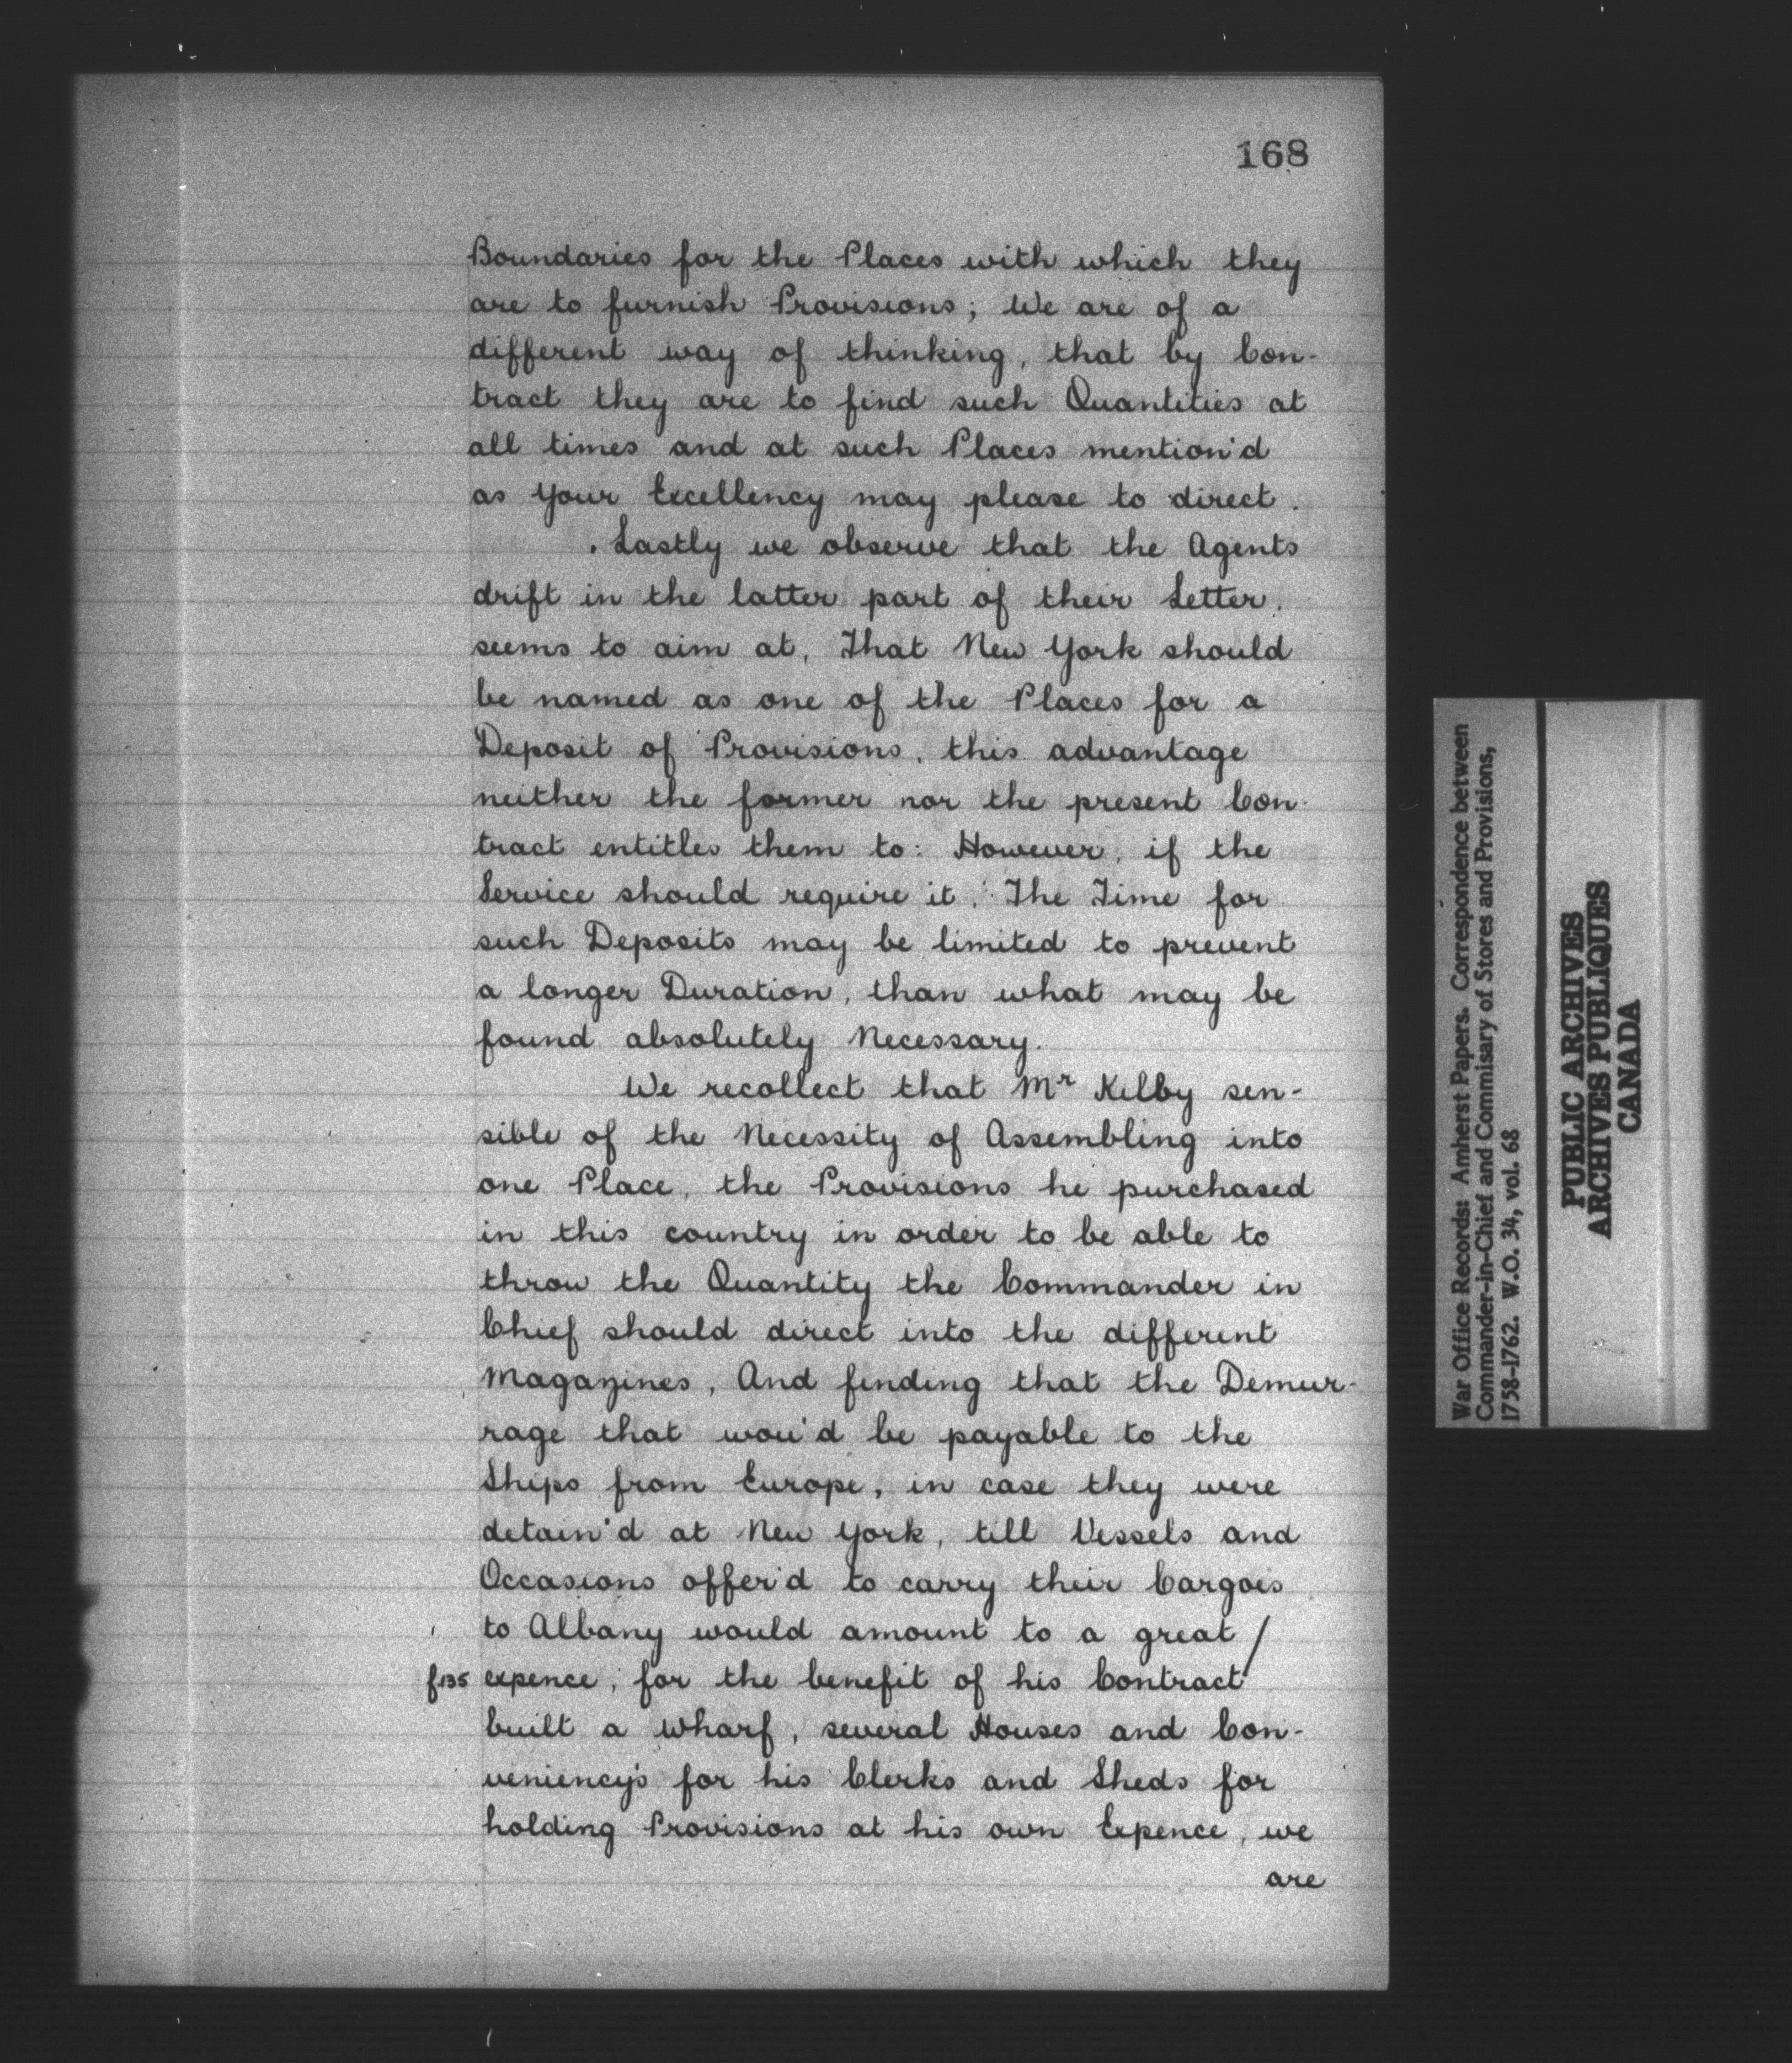 168
Boundaries for the Places with which they
are to furnish Provisions; We are of a
different way of thinking, that by Con-
tract they are to find such Quantities at
all times and at such Places mention'd
as your Excellency may please to direct.
Lastly we observe that the Agents
drift in the latter part of their Letter,
seems to aim at, That New York should
be named as one of the Places for a
Deposit of Provisions, this advantage
neither the former nor the present Con-
tract entitles them to: However, if the
Service should require it, The Time for
such Deposits may be limited to prevent
a longer Duration, than what may be
found absolutely Necessary.
We recollect that Mr Kilby sen-
sible of the Necessity of Assembling into
one Place, the Provisions he purchased
in this country in order to be able to
throw the Quantity the Commander in
Chief should direct into the different
Magazines, And finding that the Demur-
rage that wou'd be payable to the
Ships from Europe, in case they were
detain'd at New York, till Vessels and
Occasions offer'd to carry their Cargoes
to Albany would amount to a great /
f.135 expence, for the benefit of his Contract
built a Wharf, several Houses and Con-
veniency's for his Clerks and Sheds for
holding Provisions at his own Expence, we
are
War Office Records: Amherst Papers. Correspondence between
Commander-in-Chief and Commisary of Stores and Provisions,
1758-1762. W.O. 34, vol. 68
PUBLIC ARCHIVES
ARCHIVES PUBLIQUES
CANADA